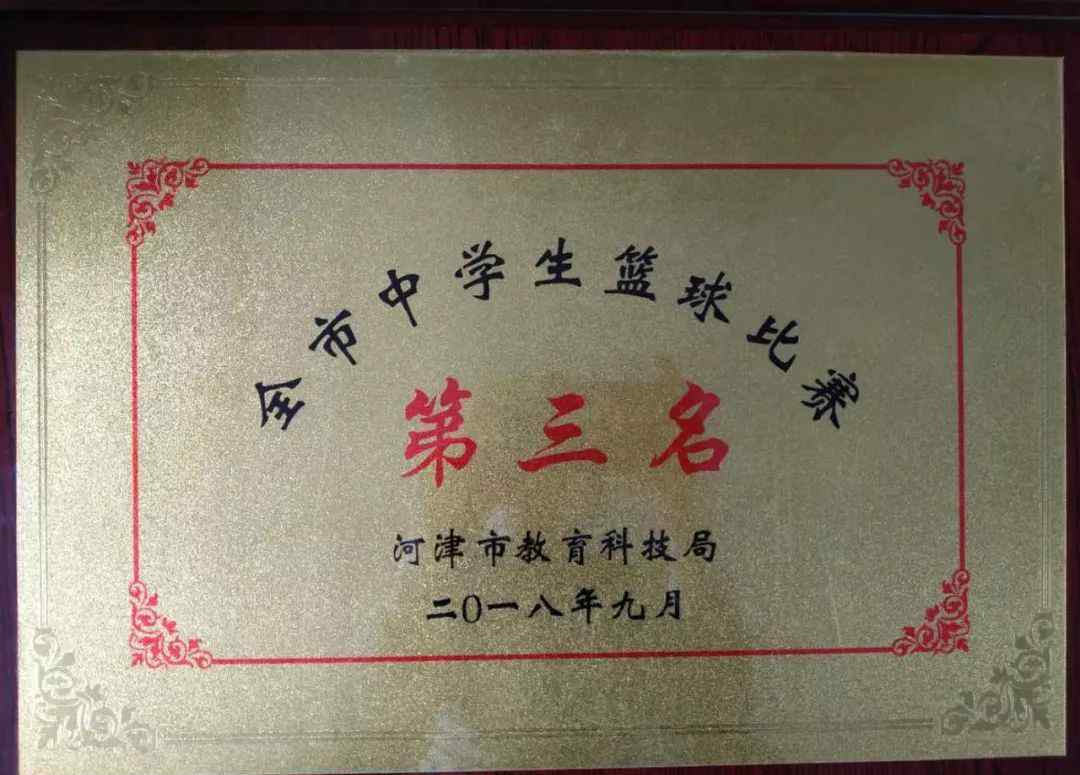 全市中学生篮球比赛
第三名
河津市教育科技局
二0一八年九月